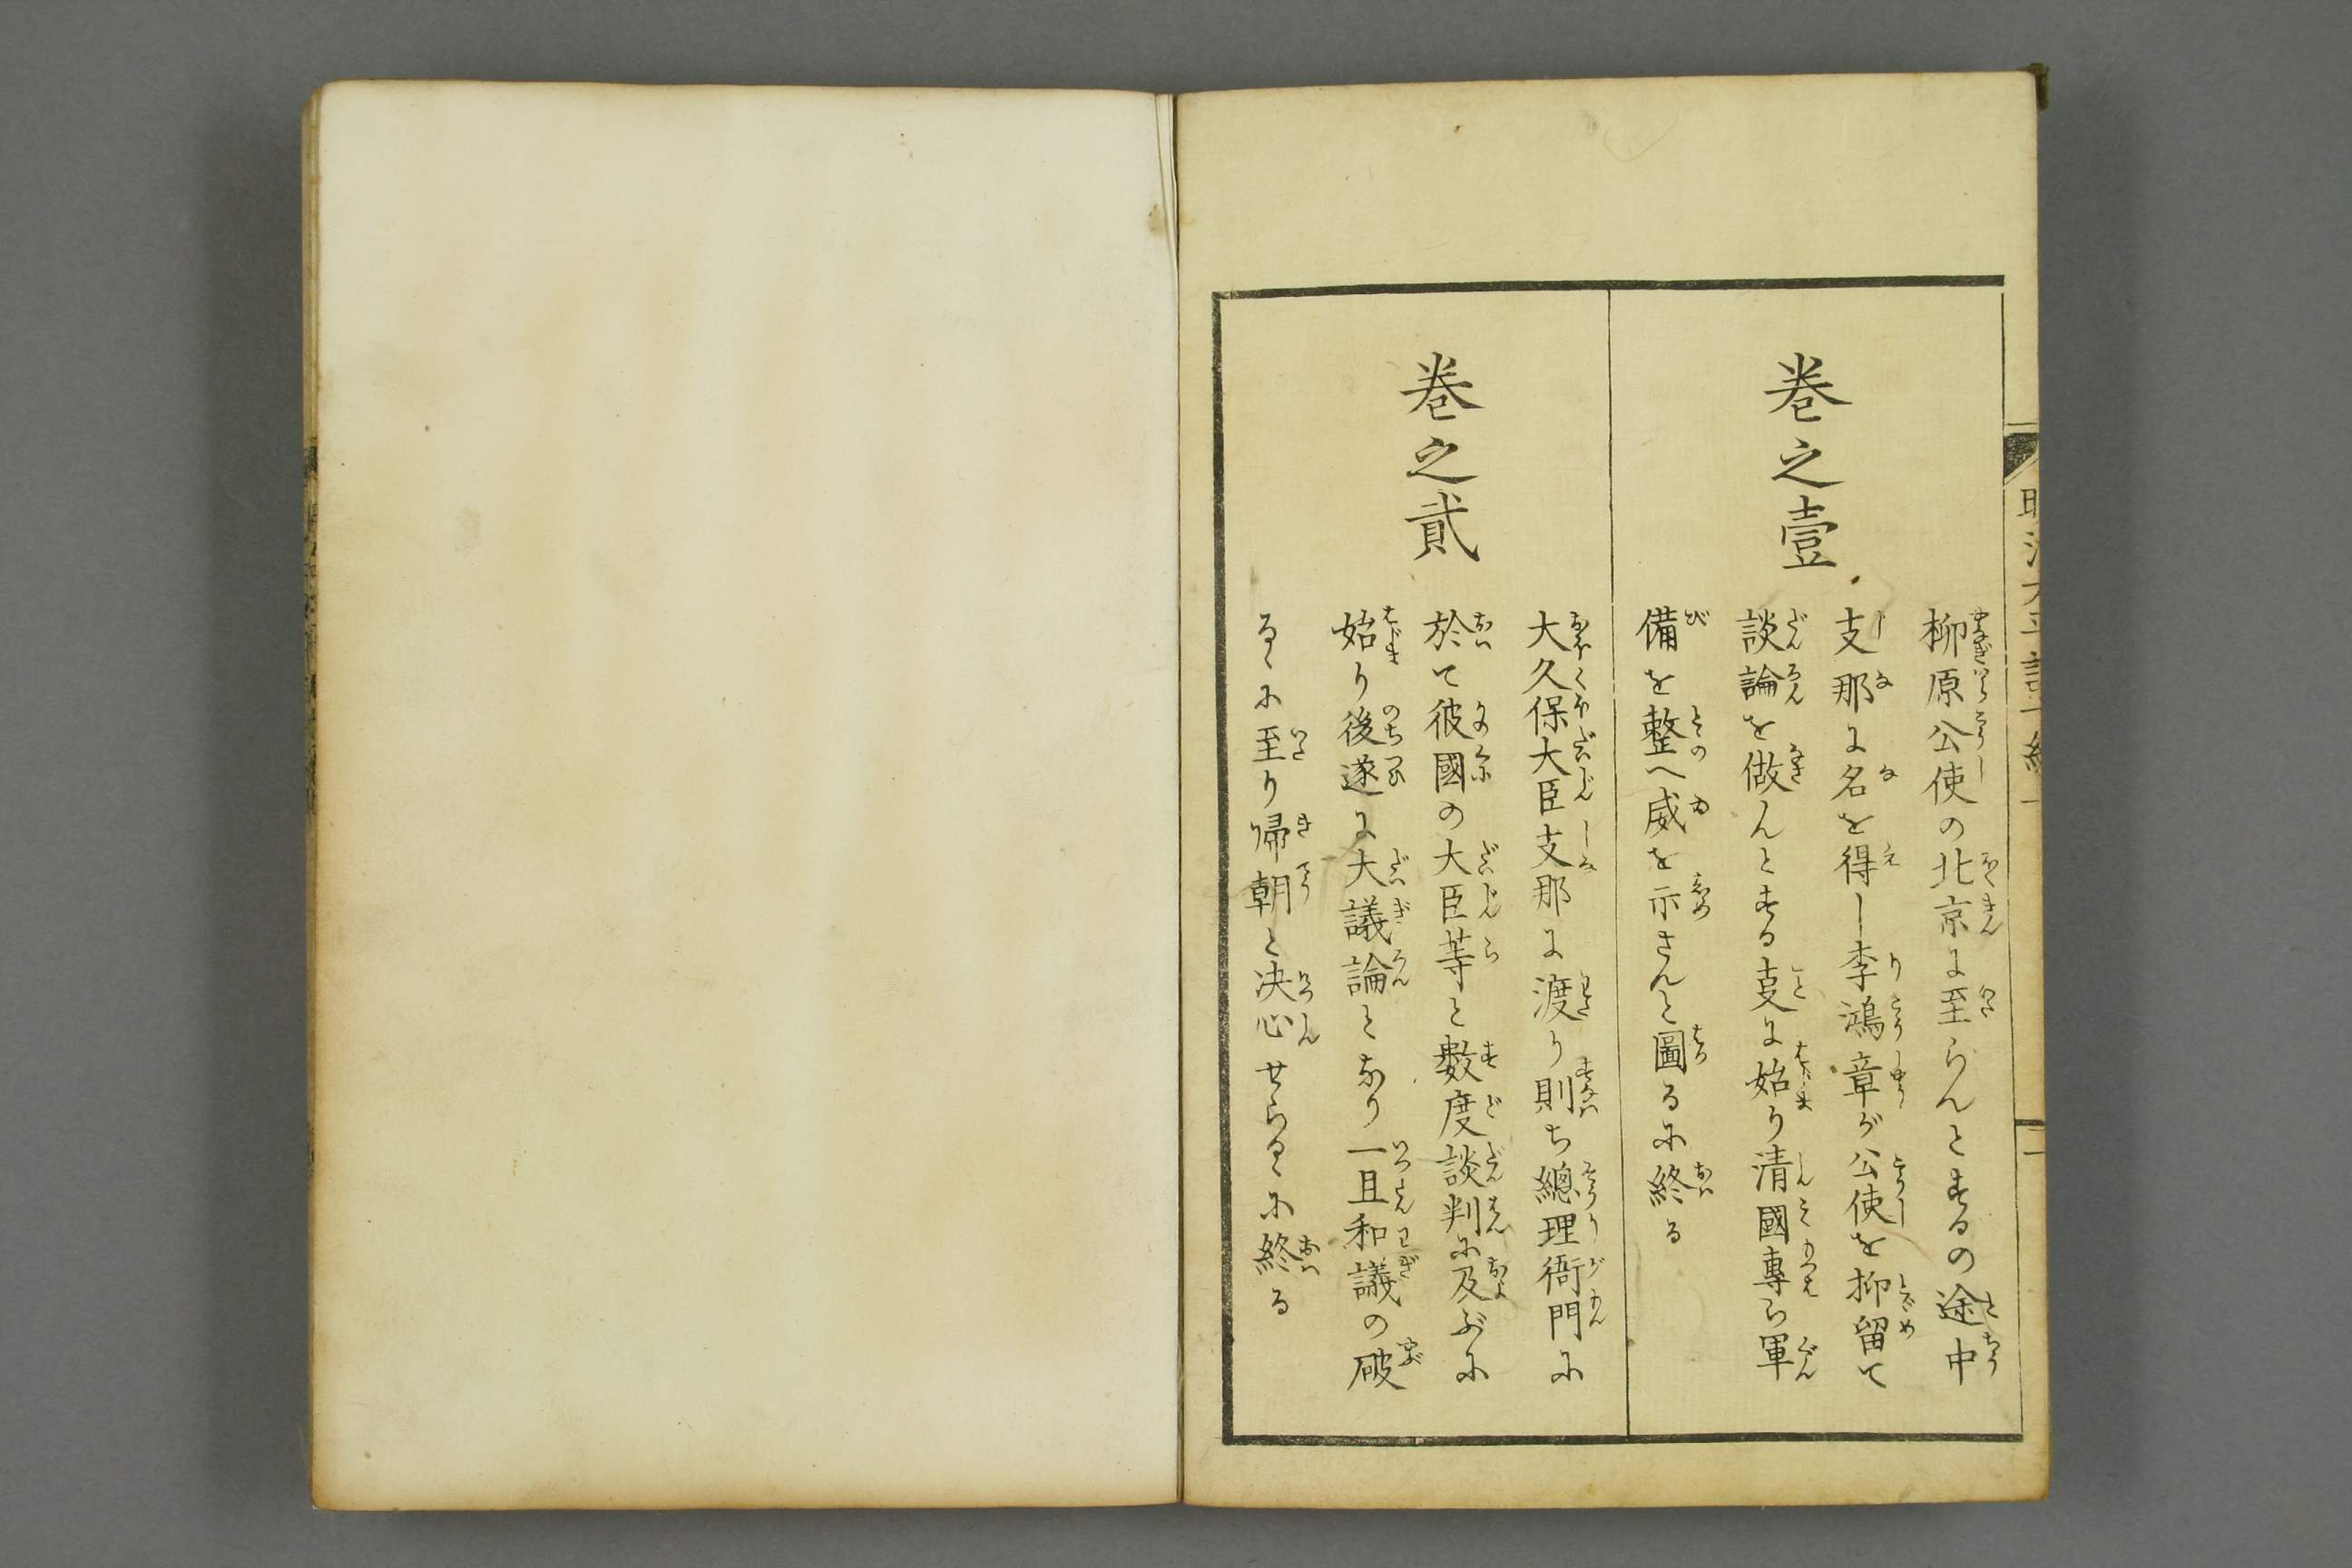 巻之壹
柳原公使の北京に至らんとするの途中
支那に名を得し李鴻章が公使を抑留て
談論を做んとする㕝に始り清國專ら軍
備を整へ威を示さんと圖るに終る
巻之貳
大久保大臣支那に渡り則ち總理衙門に
於て彼國の大臣等と數度談判に及ぶに
始り後遂に大議論となり一旦和議の破
るゝに至り帰朝と决心せらるゝに終る